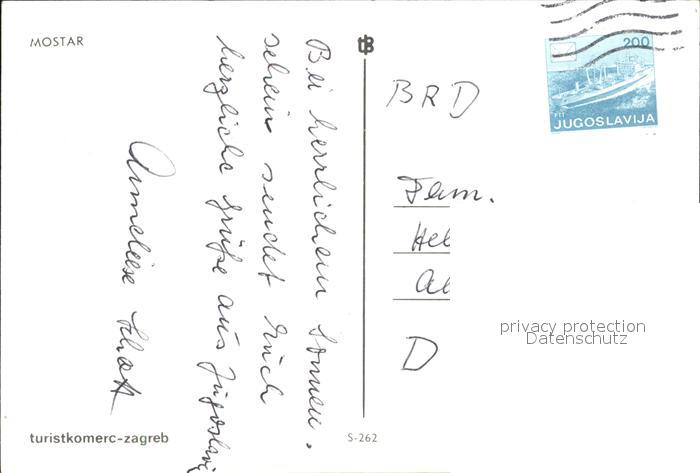 MOSTAR
Bei herrlichem Sonnen.
schein sendet Euch
herzliche Grüße aus Jugoslavi
Anneliese Schott
turistkomerc-zagreb
S-262
200
PTT
JUGOSLAVIJA
BRD
Fam.
Hel
Al
D
privacy protection
Datenschutz